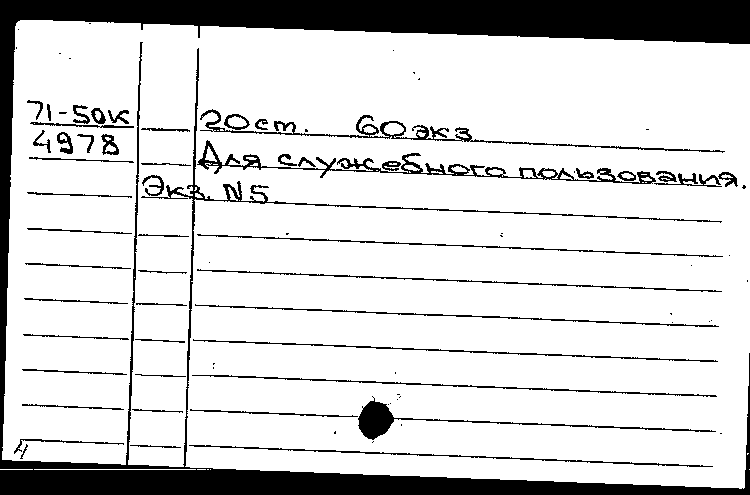 71-50К
20 ст. 60 экз
4978
Для служебного пользования.
Экз. N5